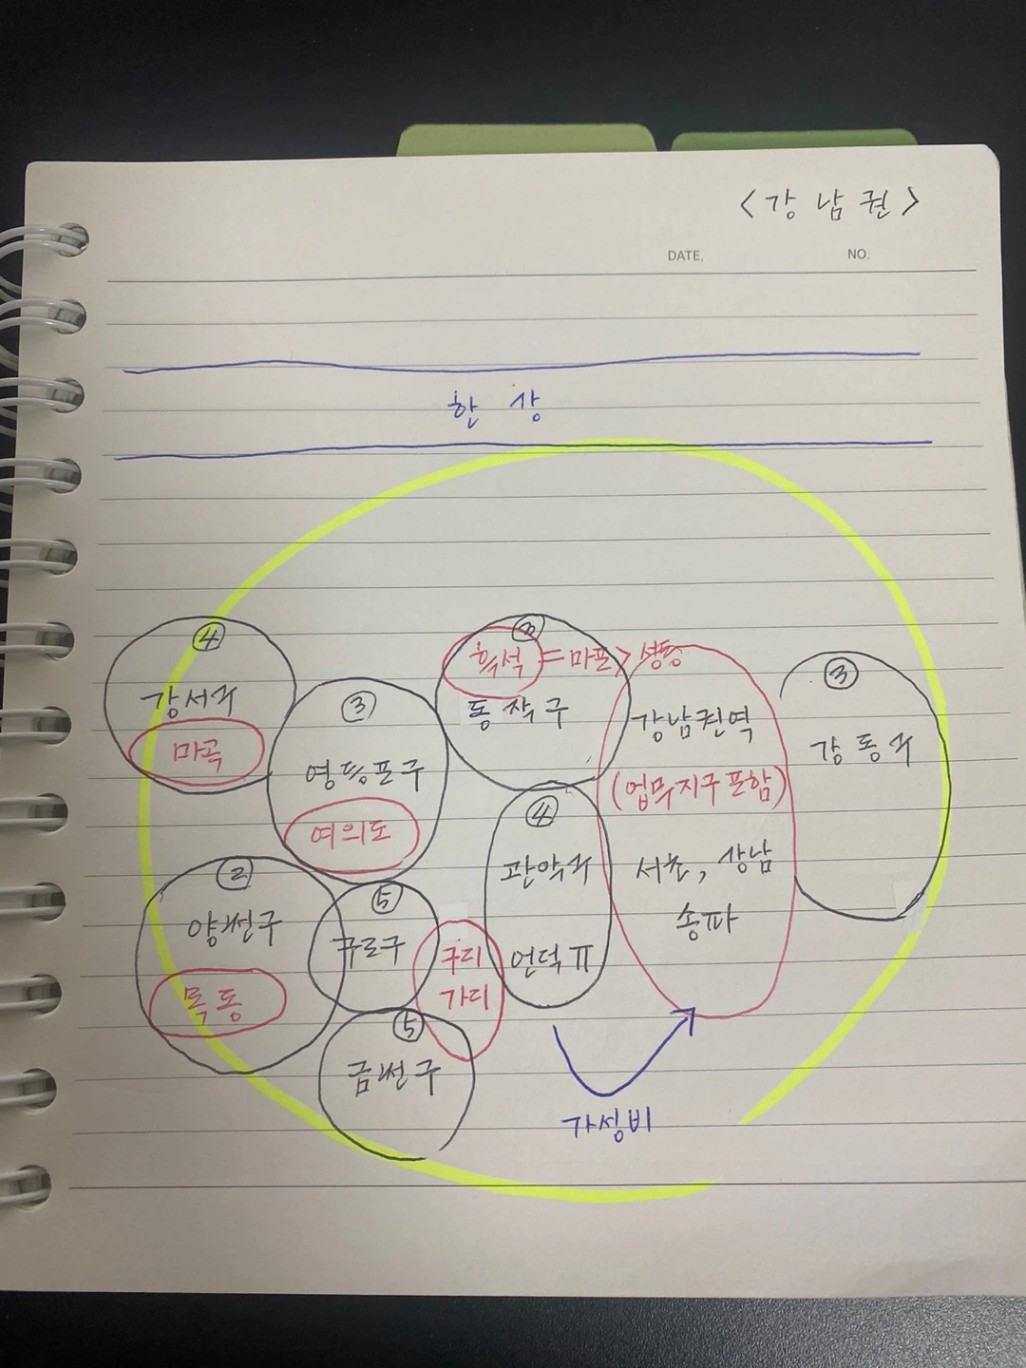 <강남권>
DATE.
NO.
한강
④
강서구
마곡
③
영등포구
여의도
흑석 = 마포 > 성동
동작구
강남권역
(업무지구 포함)
서초, 강남
송파
③
강동구
④
관악구
언덕ㅠ
②
양천구
목동
⑤
구로구
구디
가디
⑤
금천구
가성비